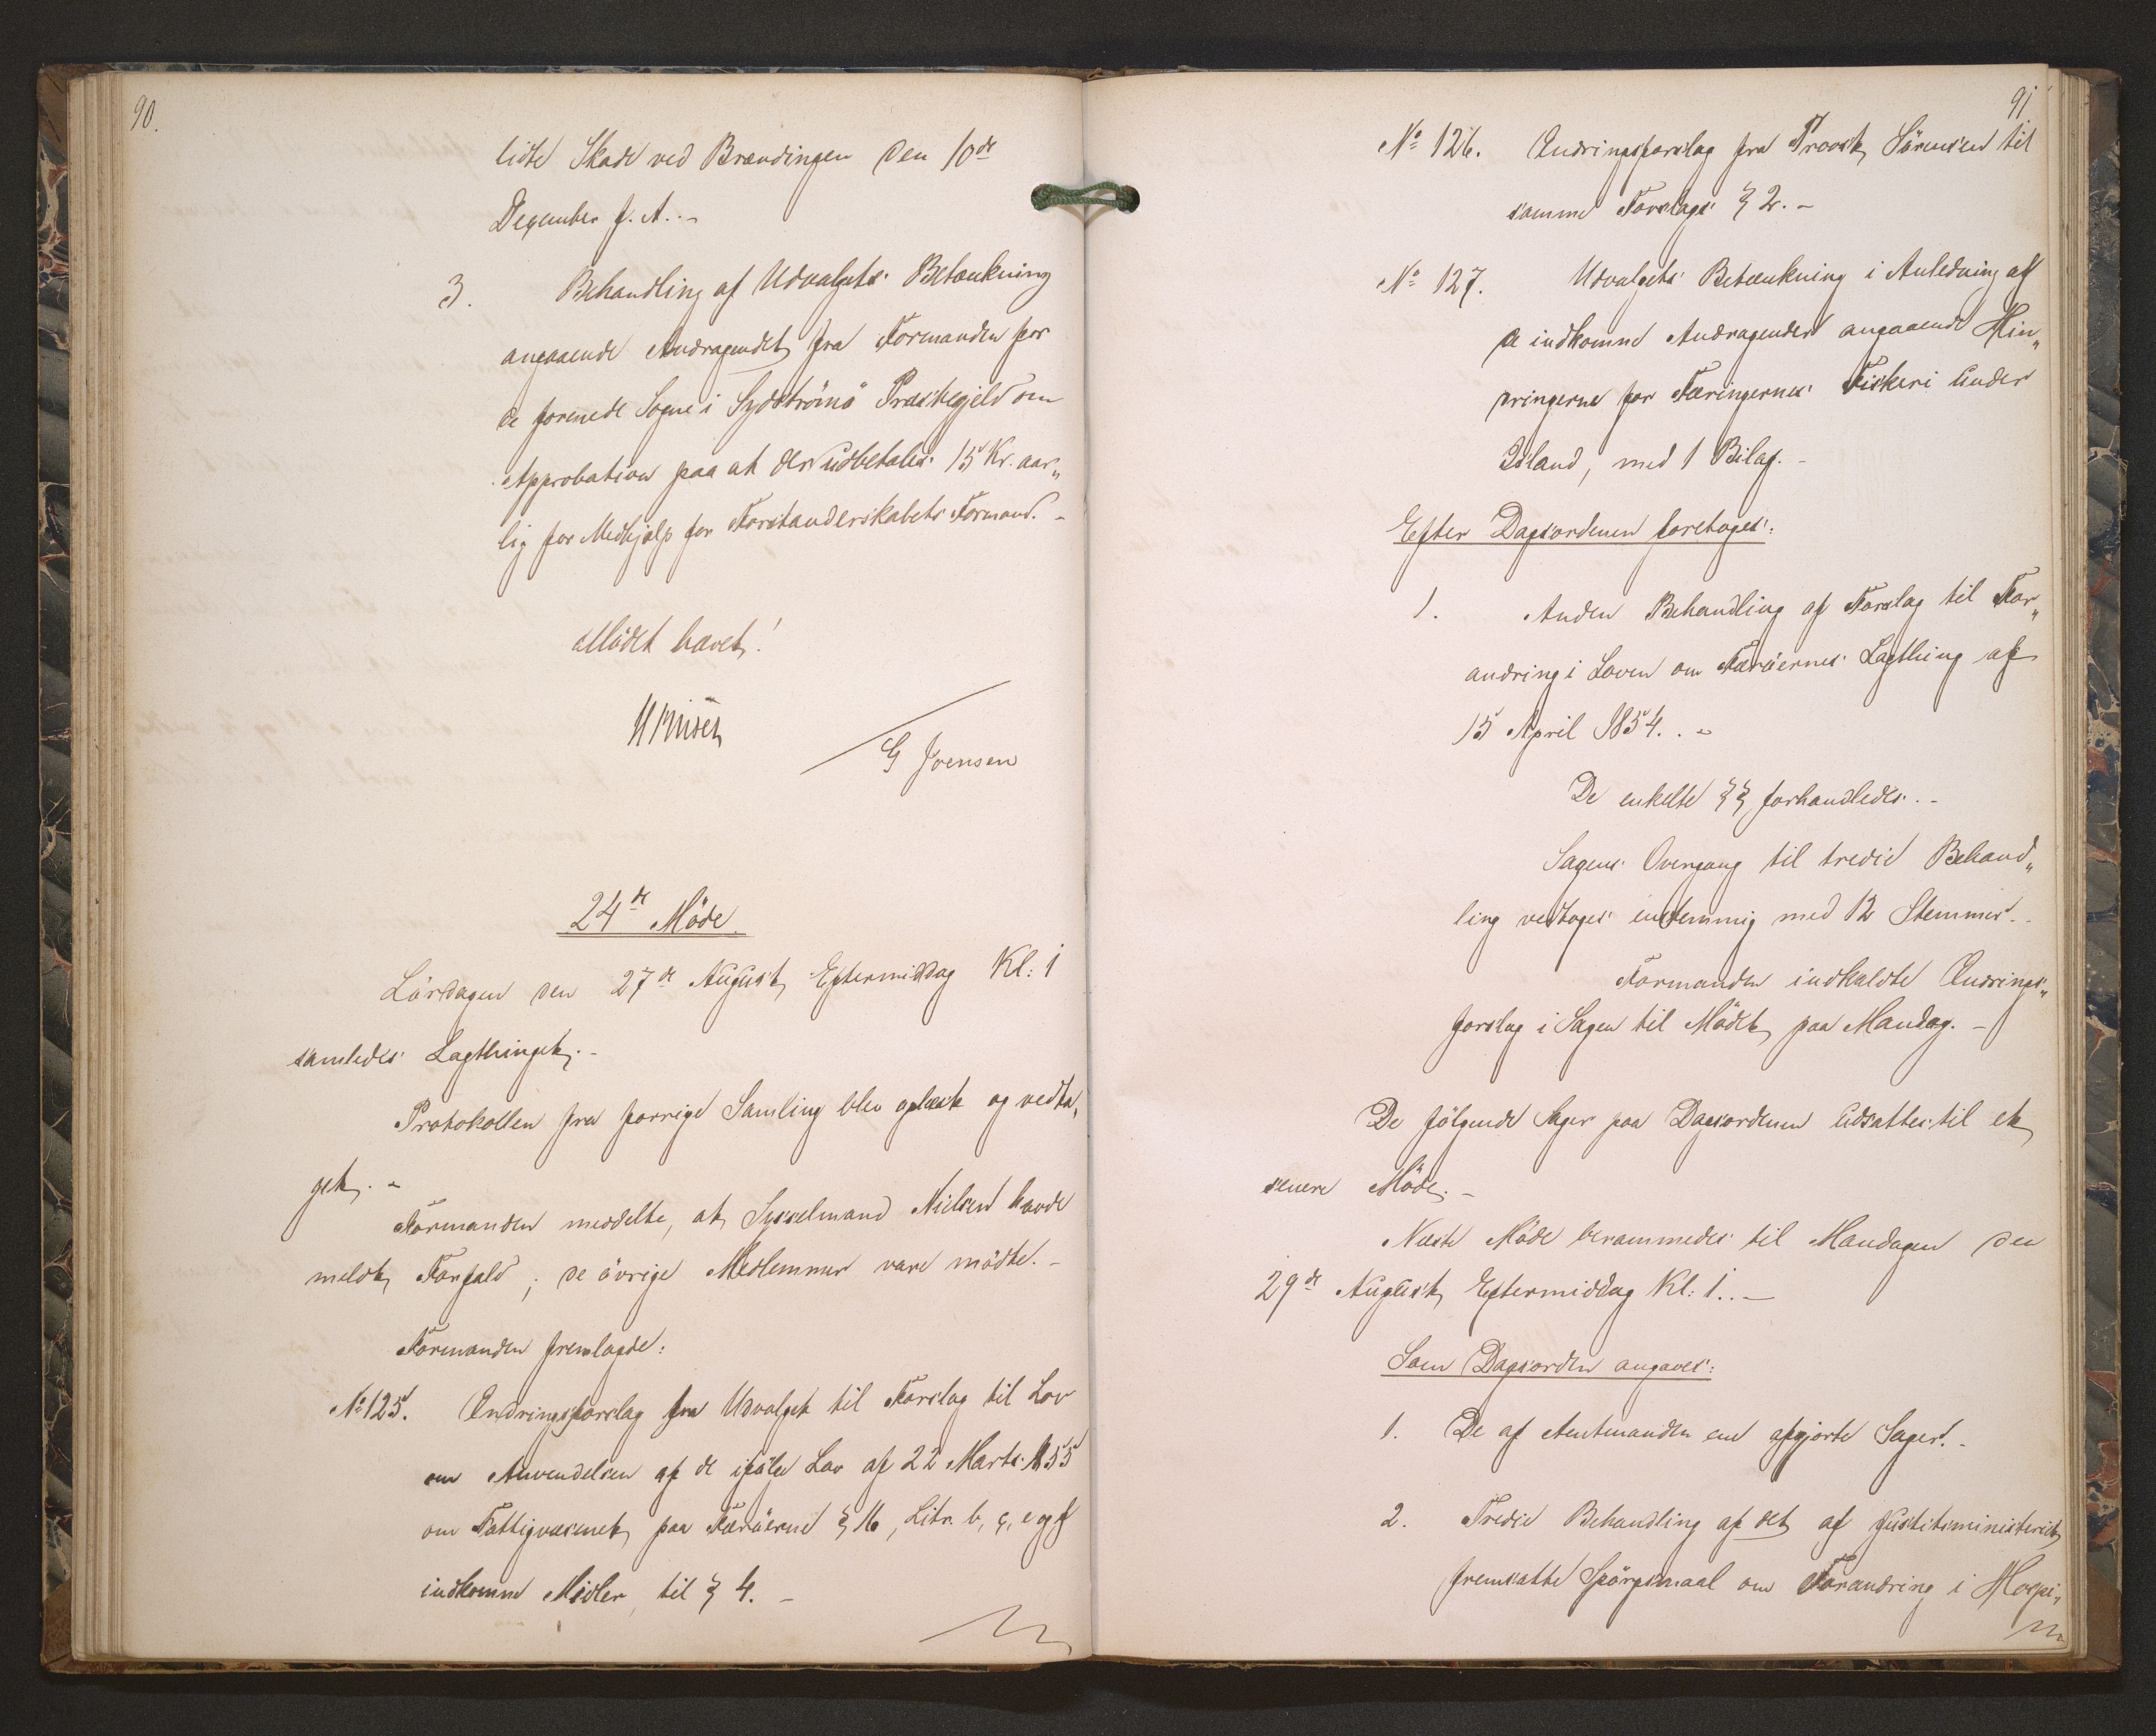 90.
lidte Skade ved Brændingen den 10de
December f. A. . -
3. Behandling af Udvalgets Betænkning
angaaende Andragendet fra Formanden for
de forenede Sogne i Sydströmö Præstegjeld om
Approbation paa at der udbetales 15 Kr. aar„
lig for Medhjælp for Forstanderskabets Formand. -
Mödet hævet!
G Joensen
24de Möde.
Lördagen den 27de August Eftermiddag Kl: 1
samledes Lagthinget. -
Protokollen fra forrige Samling blev oplæst og vedta„
get. -
Formanden meddelte, at Sysselmand Nielsen havde
meldt Forfald; de övrige Medlemmer vare mödte. -
Formanden fremlagde:
No 125. Ændringsforslag fra Udvalget til Forslag til Lov
om Anvendelsen af de ifölge Lov af 22 Marts 1855
om Fattigvæsenet paa Færöerne § 16, Litr. b, c, e og f
indkomne Midler, til § 4. -
91
No 126. Ændringsforslag fra Provst Sörensen til
samme Forslags § 2. -
No 127. Udvalgets Betænkning i Anledning af
de indkomne Andragender angaaende Hin„
dringerne for Færingernes Fiskeri under
Island, med 1 Bilag. -
Efter Dagsordenen foretoges:
1. Anden Behandling af Forslag til For„
andring i Loven om Færöernes Lagthing af
15 April 1854. . -
De enkelte §§ forhandledes. . -
Sagens Overgang til tredie Behand„
ling vedtoges enstemmig med 12 Stemmer. -
Formanden indkaldte Ændrings„
forslag i Sagen til Mödet paa Mandag. -
De fölgende Sager paa Dagsordenen udsattes til et
senere Möde. -
Næste Möde berammedes til Mandagen den
29de August Eftermiddag Kl: 1. . -
Som Dagsorden angaves:
1. De af Amtmanden ene afgjorte Sager. -
2. Tredie Behandling af det af Justitsministeriet
fremsatte Spörgsmaal om Forandring i Hospi„